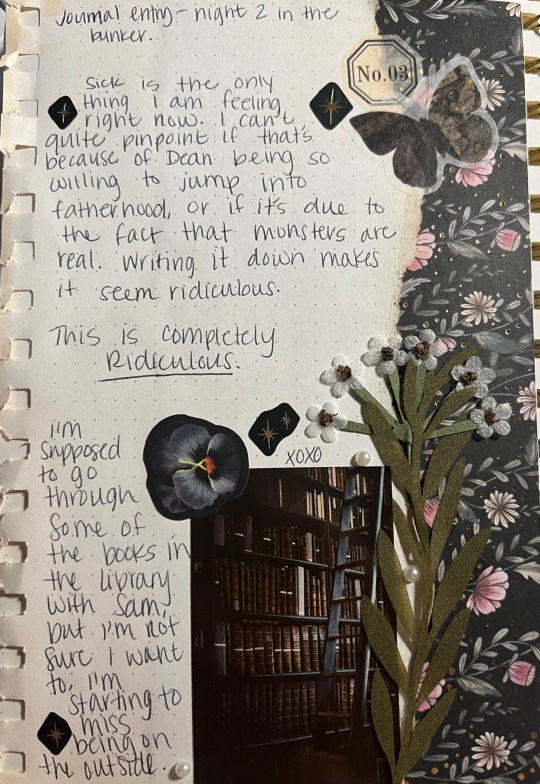 Journal entry - night 2 in the
bunker.
No.03
Sick is the only
thing I am feeling
right now. I can't
quite pinpoint if that's
because of Dean being so
willing to jump into
fatherhood, or if it's due to
the fact that monsters are
real. Writing it down makes
it seem ridiculous.
This is completely
Ridiculous.
I'm
supposed
to go
through
some of
the books in
the library
with Sam,
but I'm not
sure I want
to. I'm
starting to
miss
being on
the outside.
XOXO